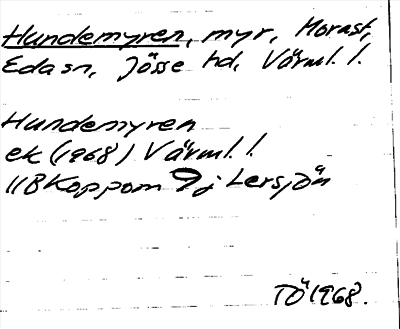 Hundemyren, myr, Morast,
Eda sn, Jösse hd, Värml. l.
Hundemyren
ek (1968) Värml. l.
11B Koppom 9j Lersjön
TÖ 1968.